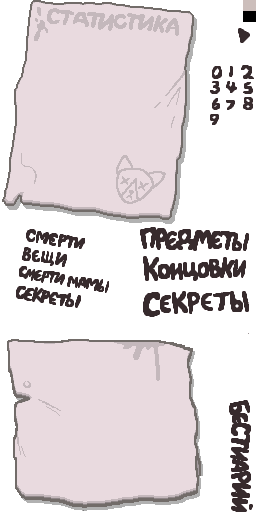 СТАТИСТИКА
0 1 2
3 4 5
6 7 8
9
СМЕРТИ
ВЕЩИ
СМЕРТИ МАМЫ
СЕКРЕТЫ
ПРЕДМЕТЫ
Концовки
СЕКРЕТЫ
БЕСТИАРИЙ